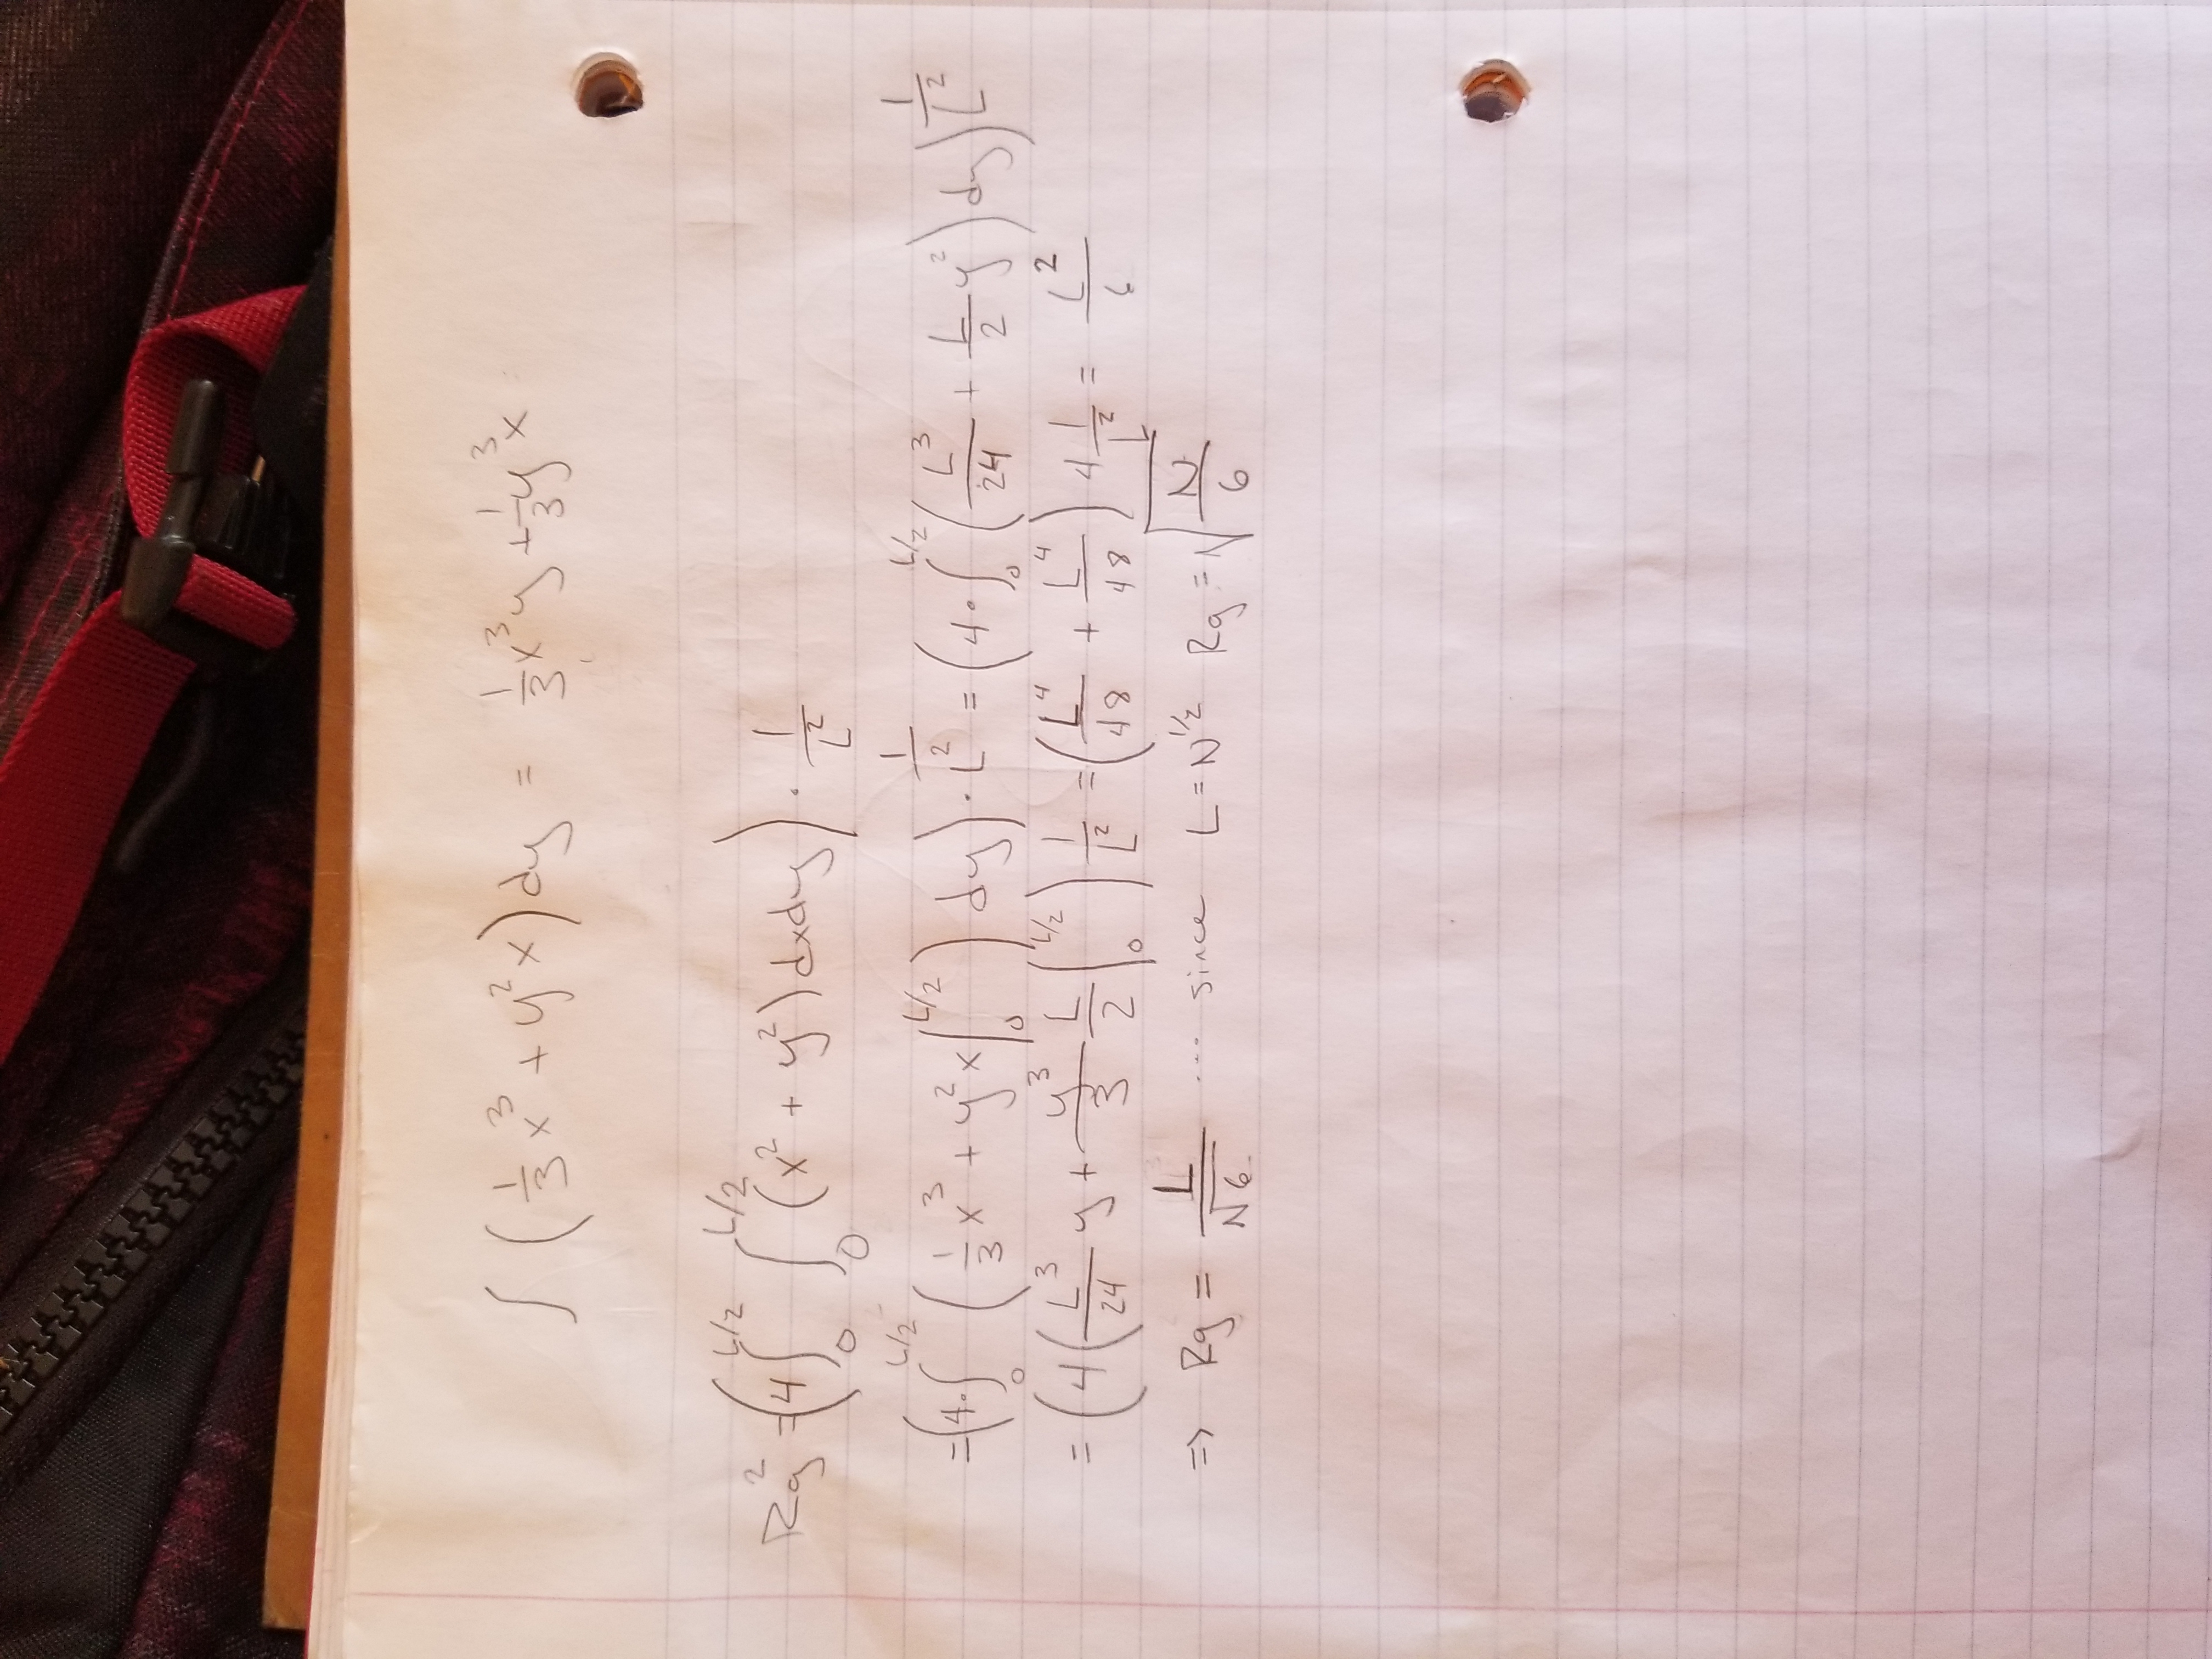 ∫ (1/3 x³ + y²x) dy = 1/3 x³y + 1/3 y³x
Rg² = (4 ∫₀^{L/2} ∫₀^{L/2} (x² + y²) dxdy) · 1/L²
= (4 · ∫₀^{L/2} (1/3 x³ + y²x |₀^{L/2}) dy) · 1/L² = (4 · ∫₀^{L/2} (L³/24 + L/2 y²) dy) 1/L²
= (4 (L³/24 y + y³/3 L/2 |₀^{L/2}) 1/L² = (L⁴/48 + L⁴/48) 4 1/L² = L²/6
=> Rg = L/√6 ... since L = N^{1/2} Rg = √(N/6)